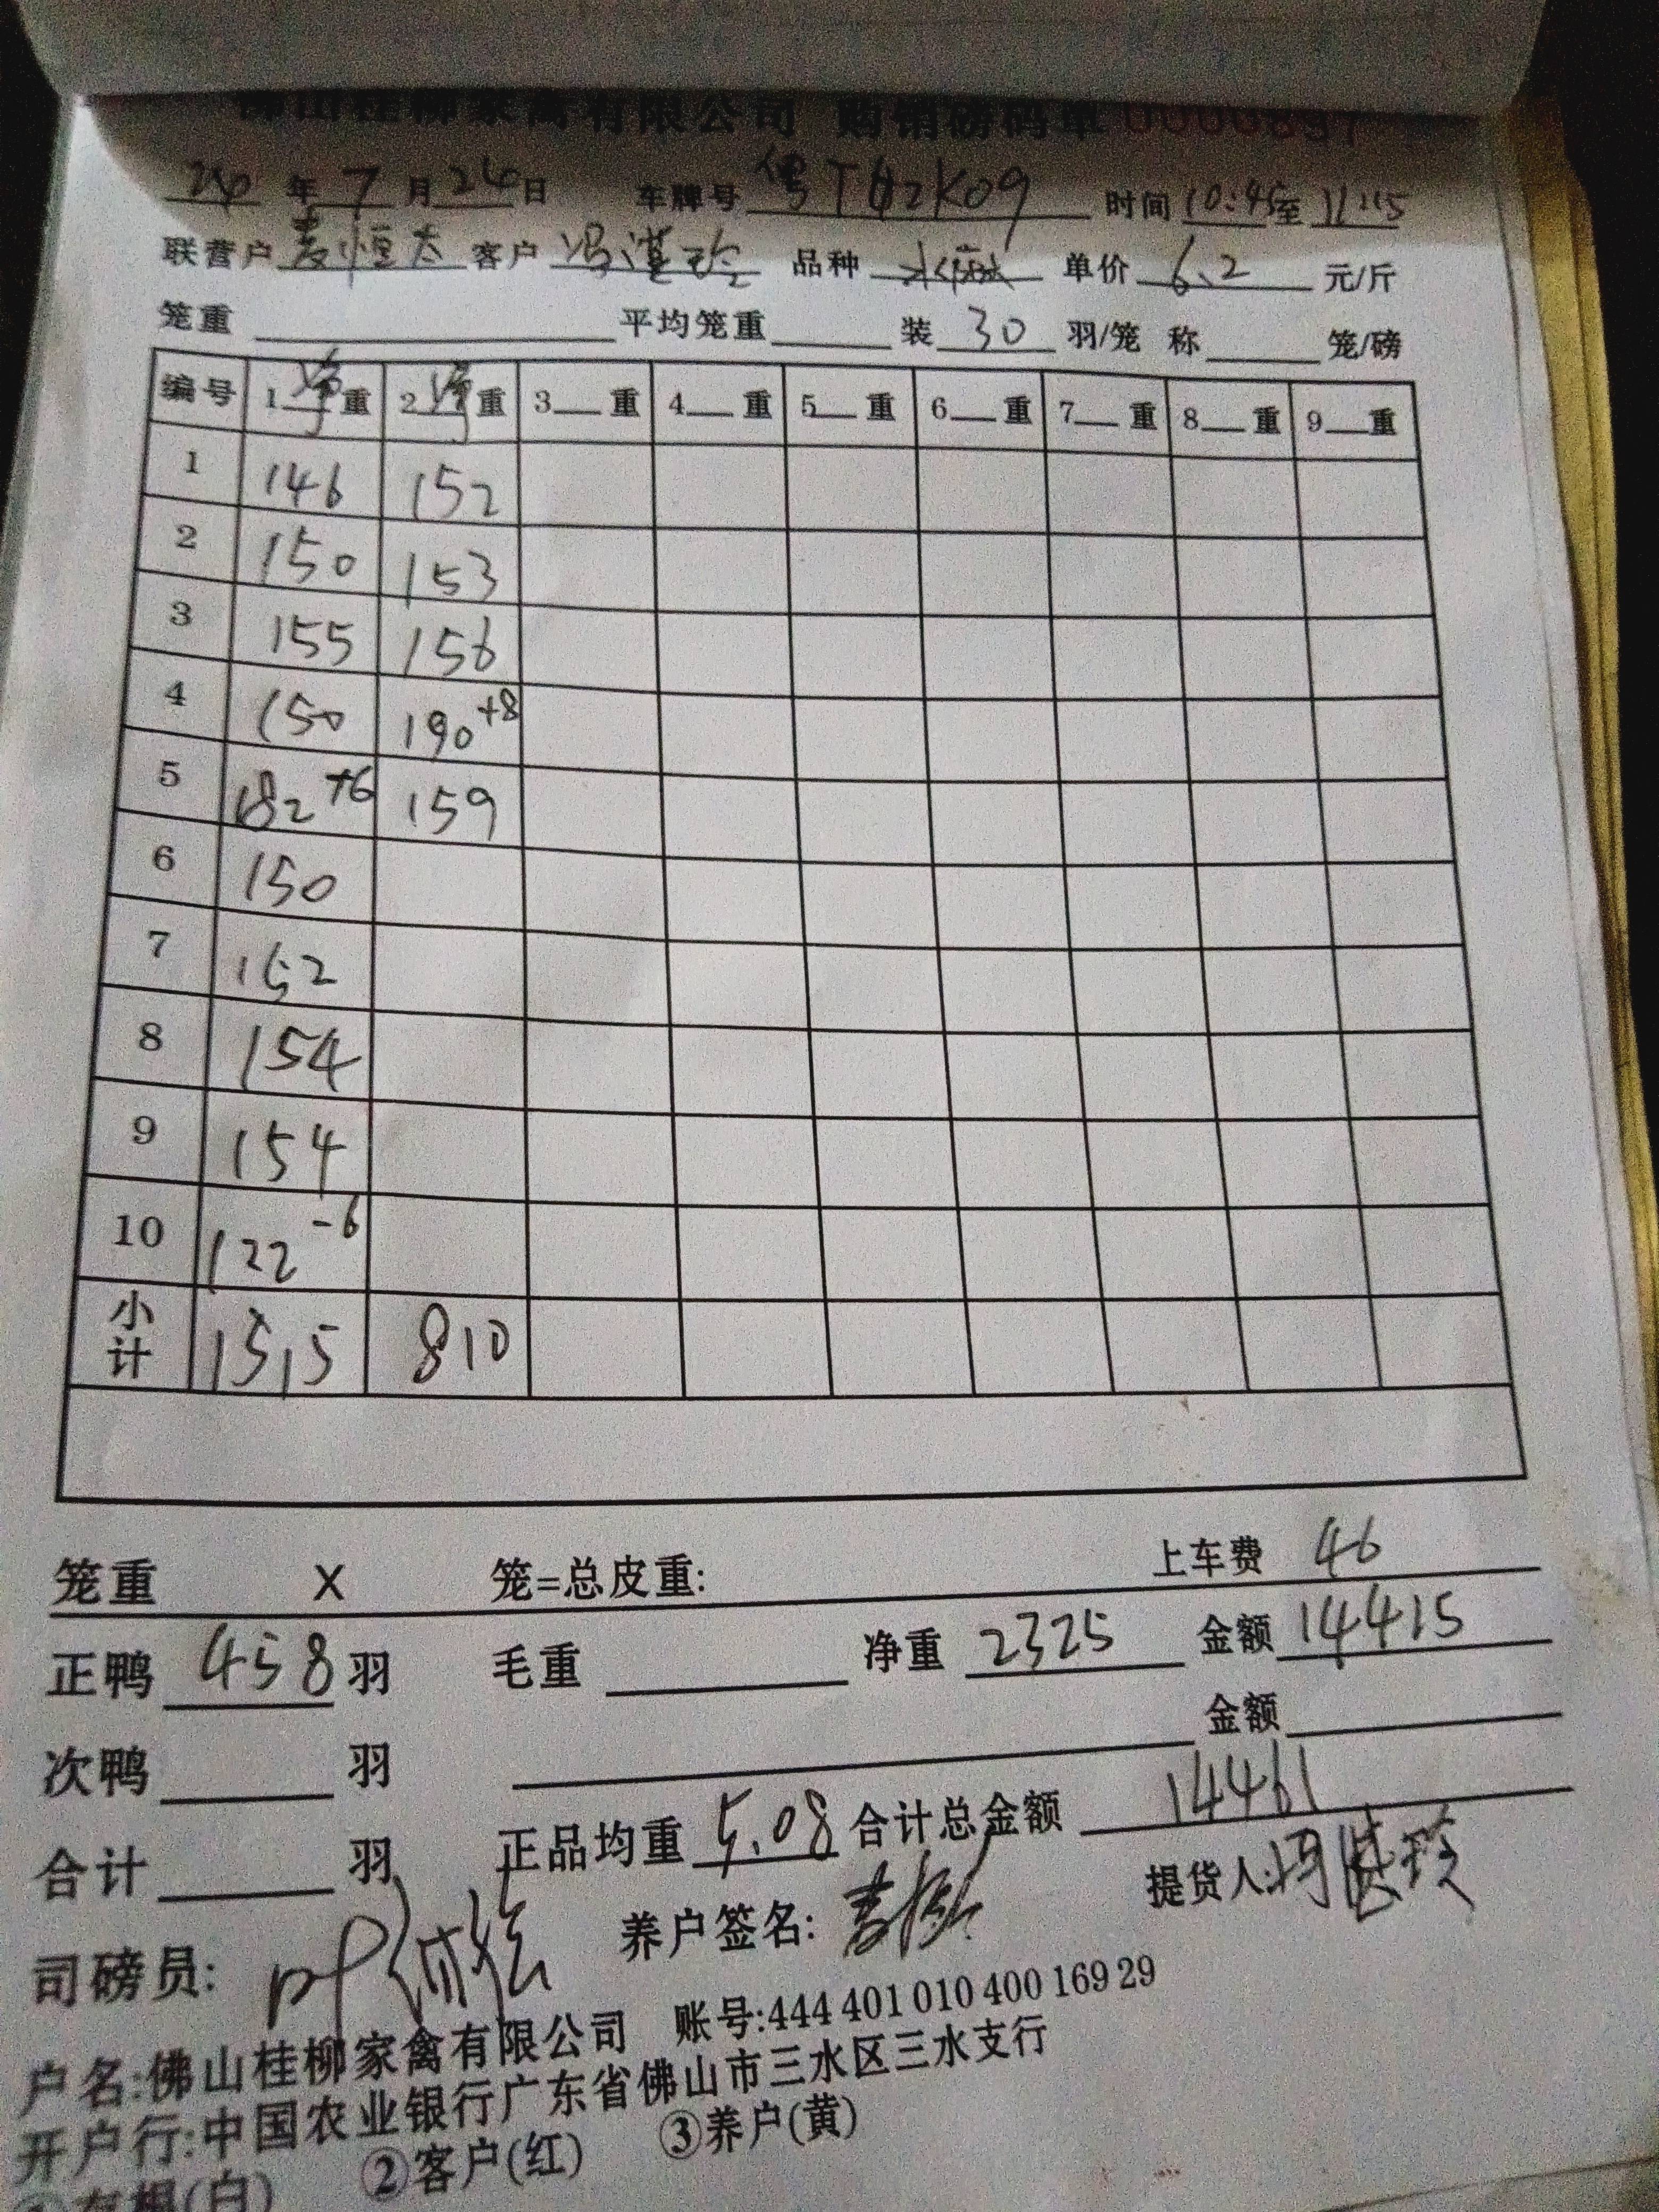 佛山桂柳家禽有限公司 购销磅码单 0000897
24 年 7 月 26 日 车牌号 T02K09 时间 10:45 至 11:15
联营户 麦恒太 客户 冯 品种 单价 6.2 元/斤
笼重 平均笼重 装 30 羽/笼 称 笼/磅
编号 1 净 重 2 净 重 3 重 4 重 5 重 6 重 7 重 8 重 9 重
1 146 152
2 150 153
3 155 156
4 150 190+8
5 182+6 159
6 150
7 152
8 154
9 154
10 122-6
小计 1515 810
笼重 X 笼=总皮重: 上车费 46
正鸭 458 羽 毛重 净重 2325 金额 14415
次鸭 羽 金额
合计 羽 正品均重 5.08 合计总金额 14461
司磅员: 叶 养户签名: 提货人:冯
户名:佛山桂柳家禽有限公司 账号:444 401 010 400 169 29
开户行:中国农业银行广东省佛山市三水区三水支行
①存根(白) ②客户(红) ③养户(黄)